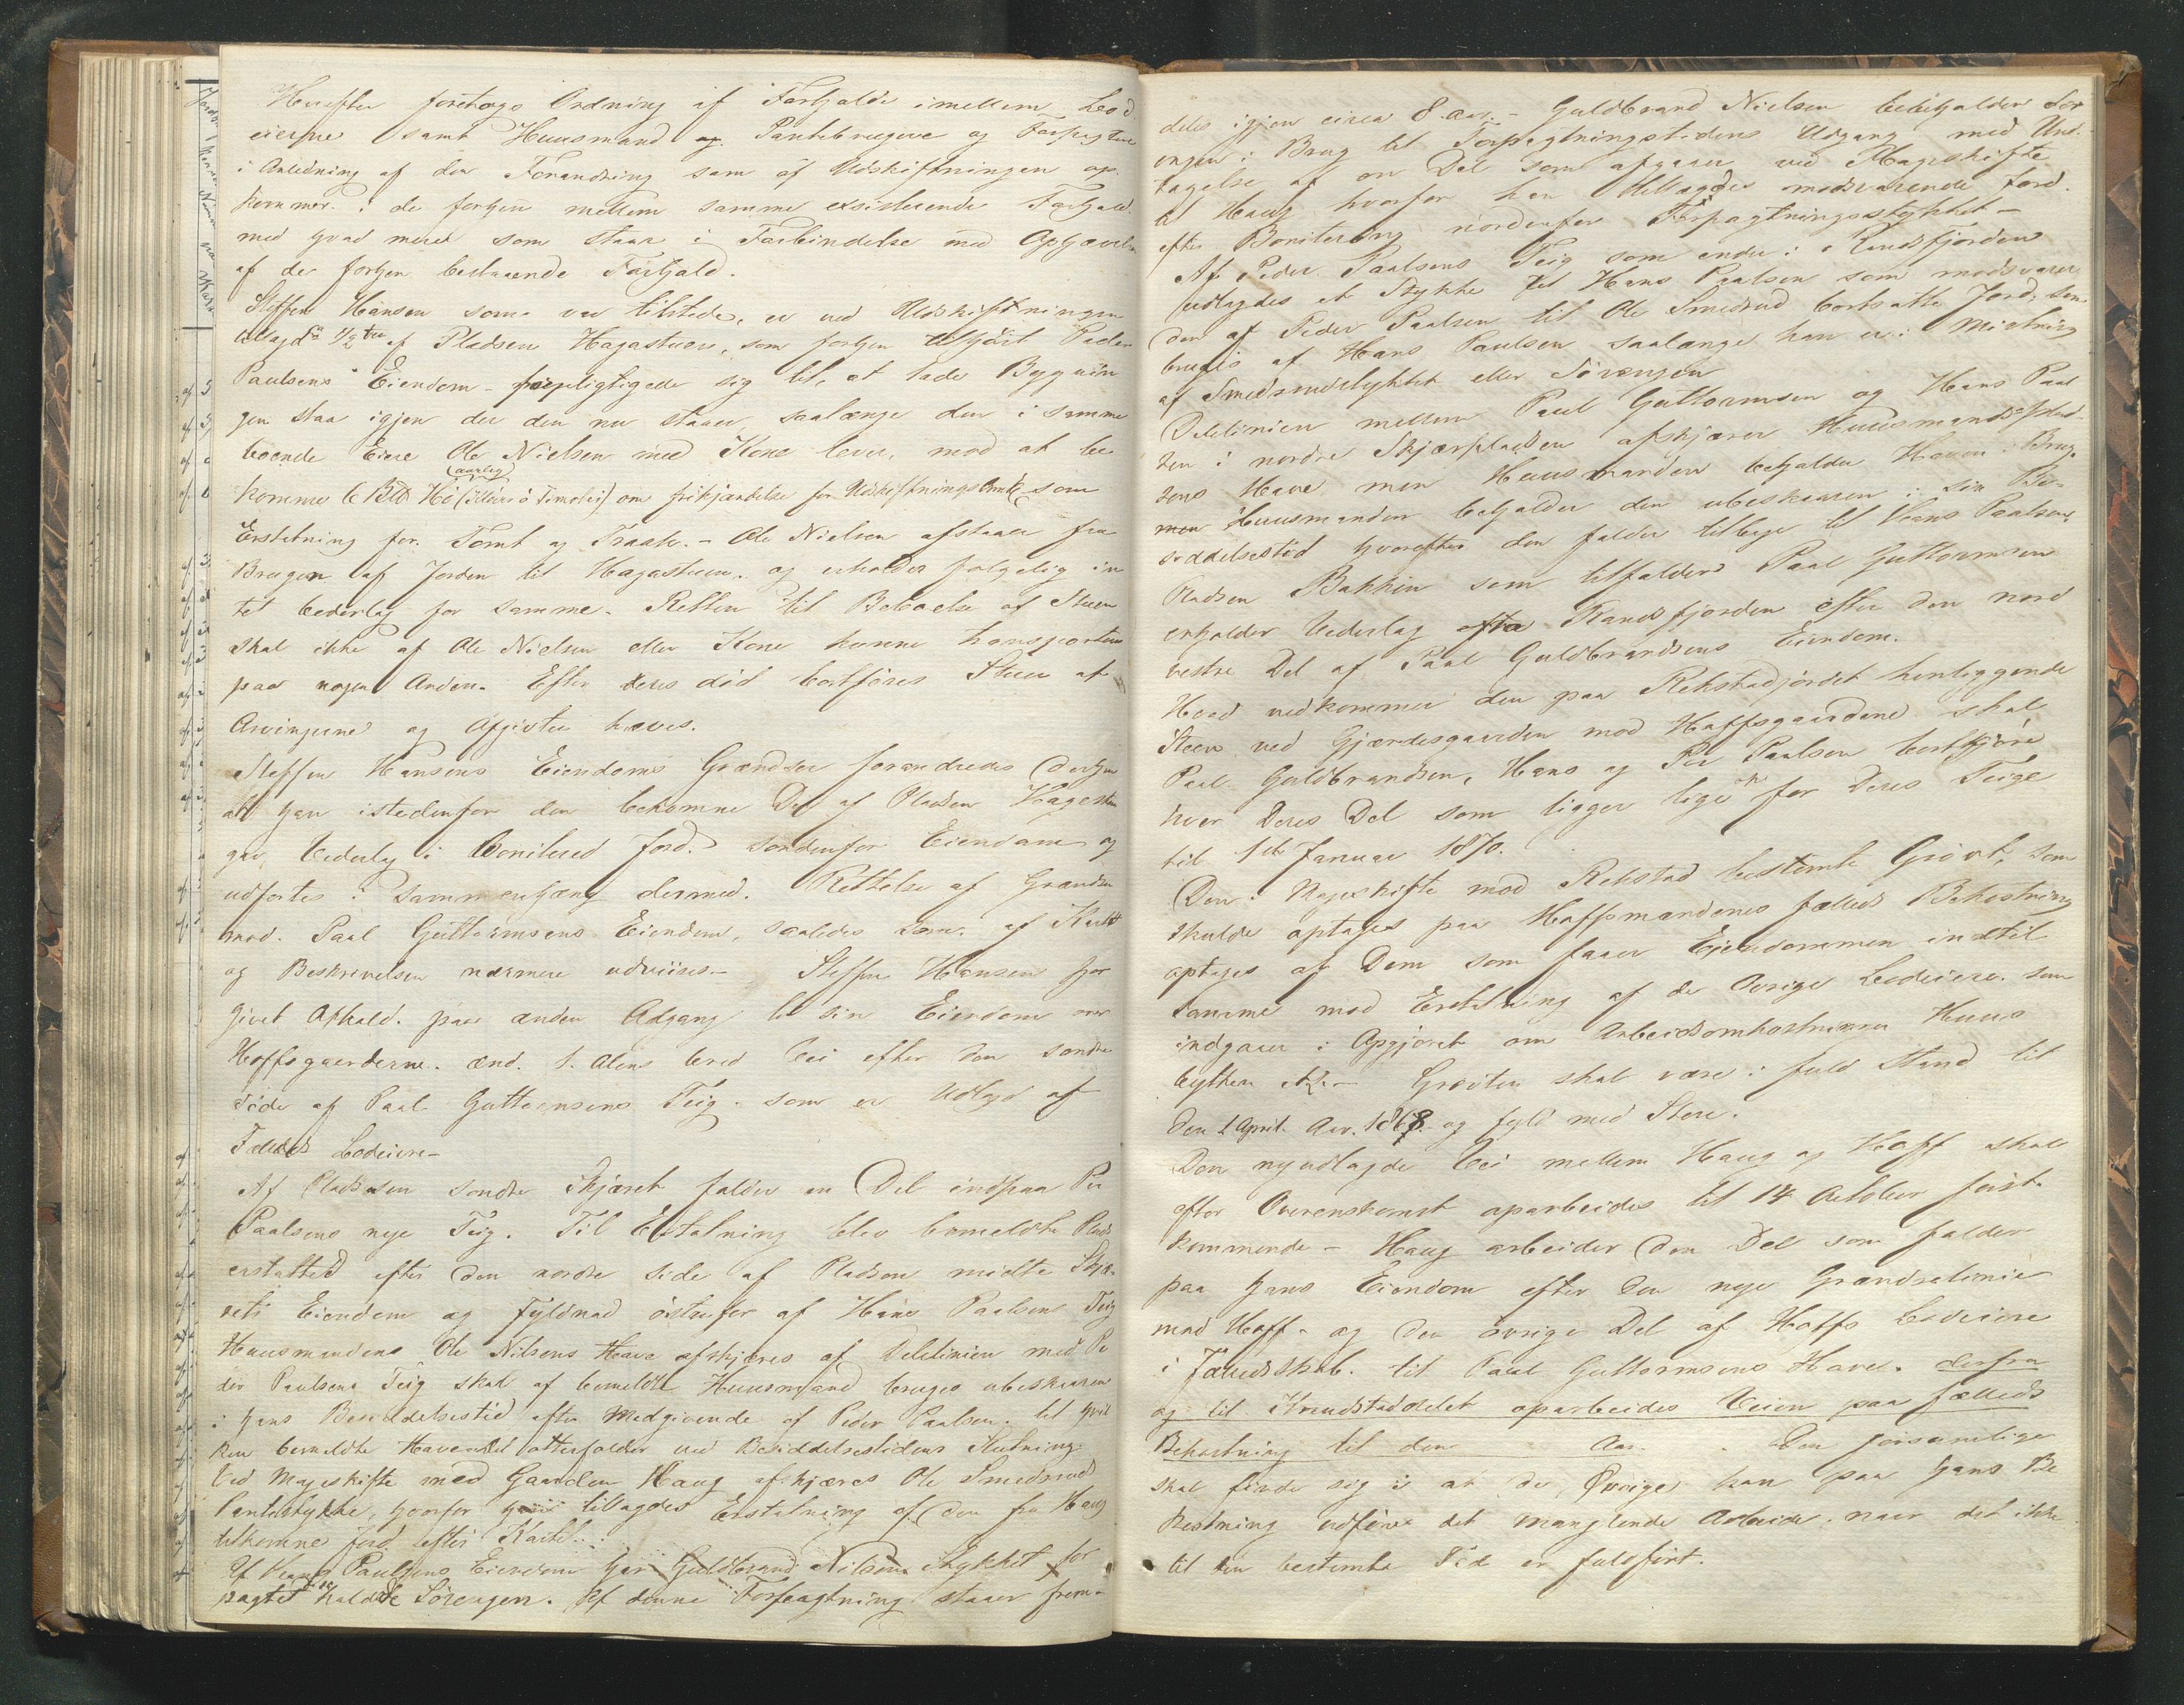 Herefter foretoges Ordning af Forhjolde imellem Lod
eierne samt Huusmænd og Pantebrugere og Forpagtere
i Anledning af den Forandring som af Udskiftningen op
kommer i de forhen mellem samme exsisterende Forhold
med hvad meret som staar i Forbindelse med Ophævelse
af de forhen bestaaende Forhjold.
Steffen Hansen som var tilstede, er ved Udskiftningen
tillagd 1/2 af Pladsen Hagastuen, som forhen tilhørt Peder
Paulsens Eiendom - forpligtigede sig til, at lade Bygnin
gen staa igjen der den nu staaer, saalænge den i samme
boende Eiere Ole Nielsen med Kone lever, mod at be
komme 6 Bd Hö (aarlig) om frikjendelse for Udskiftnings som
Erstatning for Tomt og Traak. - Ole Nielsen afstaaer fra
Brugen af Jorden til Hagastuen. og erholder følgelig in
tet Vederlag for samme. Retten til Beboelse af Stuen
skal ikke af Ole Nielsen eller Kone kunne transporteres
paa nogen Anden. Efter deres død bortføres Stuen af
Arvingerne og Afgivten hæves.
Steffen Hansens Eiendoms Grændser forandredes derhen
at han istedenfor den bekomne Del af Pladsen Hagestuen
gav Vederlag i boniteret Jord søndenfor Eiendom og
udførtes i Sammenhæng dermed. Rettelse af Grændsen
mod Paal Guttormsens Eiendom, saaledes som af Kartet
og Beskrivelsen nærmere udviises. - Steffen Hansen har
givet Afkald paa anden Adgang til sin Eiendom over
Hoffsgaarderne. end 1. Alens bred Vei efter den søndre
Side af Paal Guttormsens Teig. som er udlagd af
Fælleds Lodeiere -
Af Pladsen søndre Skjæret falder en Del indpaa Per
Paalsens nye Teig. Til Erstatning blev bemeldte Plads
erstatted efter den nordre Side af Pladsen midtre Skjæ-
rets Eiendom og Fyldnad østenfor af Hans Paalsens Teig
Huusmandens Ole Nilsens Have afskjæres af Delelinien med Pe
der Paulsens Teig skal af bemeldte Huusmand bruges ubeskaaren
i hans Besiddelsestid efter Medgivende af Peder Paalsen. til hvil
ken bemeldte Havedel atterfalder ved Besiddelsestidens Slutning.
Ved Mageskifte med Gaarden Haug afskjæres Ole Smedsruds
Pantestykke, hvorfor ham tillagdes Erstatning af den fra Haug
bekomne Jord efter Kartet.
Af Hans Paulsens Eiendom har Guldbrand Nilsen Stykket for
pagtet kaldede Sörengen. Af denne Forpagtning staaer frem-
deles igjen circa 8 aar. - Guldbrand Nielsen beholder Sör
engen i Brug til Forpagtningstidens Udgang med Und-
tagelse af en Del som afgaaer ved Mageskifte
til Haug hvorfor han tillagdes modsvarende Jord
efter Bonitering nordenfor Forpagtningsstykket -
Af Peder Paalsens Teig som ender i Randsfjorden
udlagdes et Stykke til Hans Paalsen som modsvarer
den af Peder Paalsen til Ole Smedsrud bortsatte Jord, som
bruges af Hans Paulsen saalænge han er i Mistning
af Smedsrudstykket eller Sörengen
Delelinien mellem Paul Guttormsen og Hans Paal
sen i nordre Skjærpladsen afskjærer Huusmandspladsen
sens Have men Huusmanden beholder Haven i Brug.
men Huusmanden beholder den ubeskaaren i sin Be-
siddelsestid hvorefter den falder tilbage til Hans Paalsen.
Pladsen Bakken som tilfalder Paal Guttormsen
erholder Vederlag ofra Randsfjorden efter den nord
vestre Del af Paal Guldbrandsens Eiendom.
Hvad vedkommer den paa Rekstadjordet henliggende
Steen ved Gjærdesgaarden mod Hoffsgaardene skal
Paal Guldbrandsen, Hans og Per Paalsen bortkjøre
hver Deres Del som ligger lige for Deres Teige
til 1ste Januar 1870.
Den i Mageskifte mod Rekstad bestemte Grövt, som
skulde optages paa Hoffsmændenes fælleds Bekostning
optages af Dem som faaer Eiendommen indtil
samme mod Erstatning af de Øvrige Lodeiere. som
indgaaer i Opgjöret om Arbeidsomkostninger Huus
bytten &c. - Grøvten skal være i fuld Stand til
den 1 April Aar. 1868 og fyld med Steen.
Den nyudlagde Vei mellem Haug og Hoff skal
efter Overenskomst oparbeides til 14 October først-
kommende - Haug arbeider den Del som falder
paa hans Eiendom efter den nye Grændselinie
mod Hoff - og den øvrige Del af Hoffs Lodeiere
i Fælledsskab. til Paal Guttormsens Have. derfra
og til Strandstaddelet oparbeides Veien paa fælleds
Bekostning til den Aar. Den forsømelige
skal finde sig i at de Øvrige kan paa hans Be
kostning udføre det manglende Arbeide naar det ikke
til den bestemte Tid er fuldført.